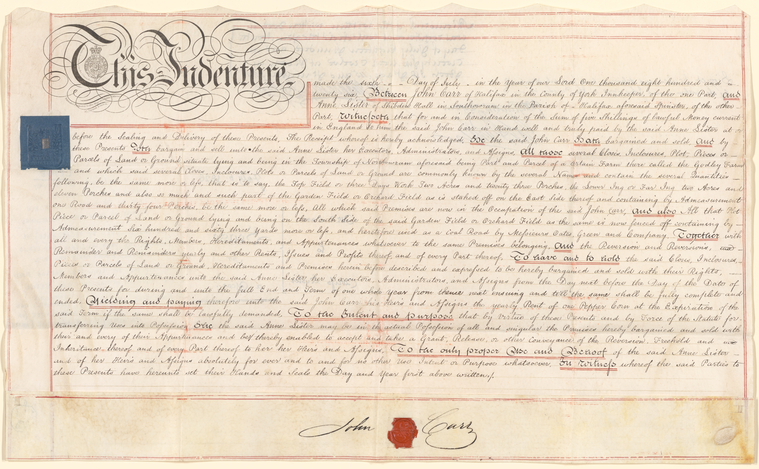 This Indenture
made the sixth Day of July in the Year of our Lord One thousand eight hundred and
twenty six Between John Carr of Halifax in the County of York Innkeeper, of the one Part And
Anne Lister of Shibden Hall in Southowram in the Parish of Halifax aforesaid Spinster, of the other
Part, Witnesseth that for and in Consideration of the Sum of five Shillings of lawful Money current
in England to him the said John Carr in Hand well and truly paid by the said Anne Lister at
before the Sealing and Delivery of these Presents, The Receipt whereof is hereby acknowledged, He the said John Carr Hath bargained and sold And by
these Presents Doth bargain and sell unto the said Anne Lister her Executors, Administrators, and Assigns, All those several Closes, Inclosures, Plots, Pieces or
Parcels of Land or Ground situate lying and being in the Township of Northowram aforesaid being Part and Parcel of a certain Farm there called the Godley Farm
and which said several Closes, Inclosures, Plots or Parcels of Land or Ground are commonly known by the several Names and contain the several Quantities
following, be the same more or less, that is to say, the Top Field or three Days Work Two Acres and twenty three Perches, the Lower Ing or Far Ing two Acres and
eleven Perches and also so much and such part of the Garden Field or Orchard Field as is staked off on the East Side thereof and containing by Admeasurement
one Rood and thirty four Perches, be the same more or less, All which said Premises are now in the Occupation of the said John Carr, And also All that Plot
Piece or Parcel of Land or Ground lying and being on the South Side of the said Garden Field or Orchard Field as the same is now fenced off containing by
Admeasurement Six hundred and sixty three Yards more or less, and heretofore used as a Coal Road by Messieurs Oates, Green and Company, Together with
all and every the Rights, Members, Hereditaments, and Appurtenances whatsoever to the same Premises belonging, And the Reversion and Reversions,
Remainder and Remainders yearly and other Rents, Issues and Profits thereof, and of every Part thereof, To have and to hold the said Closes, Inclosures,
Pieces or Parcels of Land or Ground Hereditaments and Premises herein before described and expressed to be hereby bargained and sold with their Rights,
Members and Appurtenances unto the said Anne Lister her Executors, Administrators, and Assigns from the Day next before the Day of the Date of
these Presents for during and unto the full End and Term of one whole Year from thence next ensuing and till the same shall be fully complete and
ended, Yielding and paying therefore unto the said John Carr his Heirs and Assigns the yearly Rent of one Pepper Corn at the Expiration of the
said Term if the same shall be lawfully demanded. To the Intent and purpose that by Virtue of these Presents and by Force of the Statute for
transferring Uses into Possession She the said Anne Lister may be in the actual Possession of all and singular the Premises hereby bargained and sold with
their and every of their Appurtenances and be thereby enabled to accept and take a Grant, Release, or other Conveyance of the Reversion, Freehold and
Inheritance thereof and of every Part thereof to her her Heirs and Assigns, To the only proper Use and Behoof of the said Anne Lister
and of her Heirs and Assigns absolutely for ever and to and for no other Use Intent or Purpose whatsoever. In witness whereof the said Parties to
these Presents have hereunto set their Hands and Seals the Day and Year first above written.
John Carr